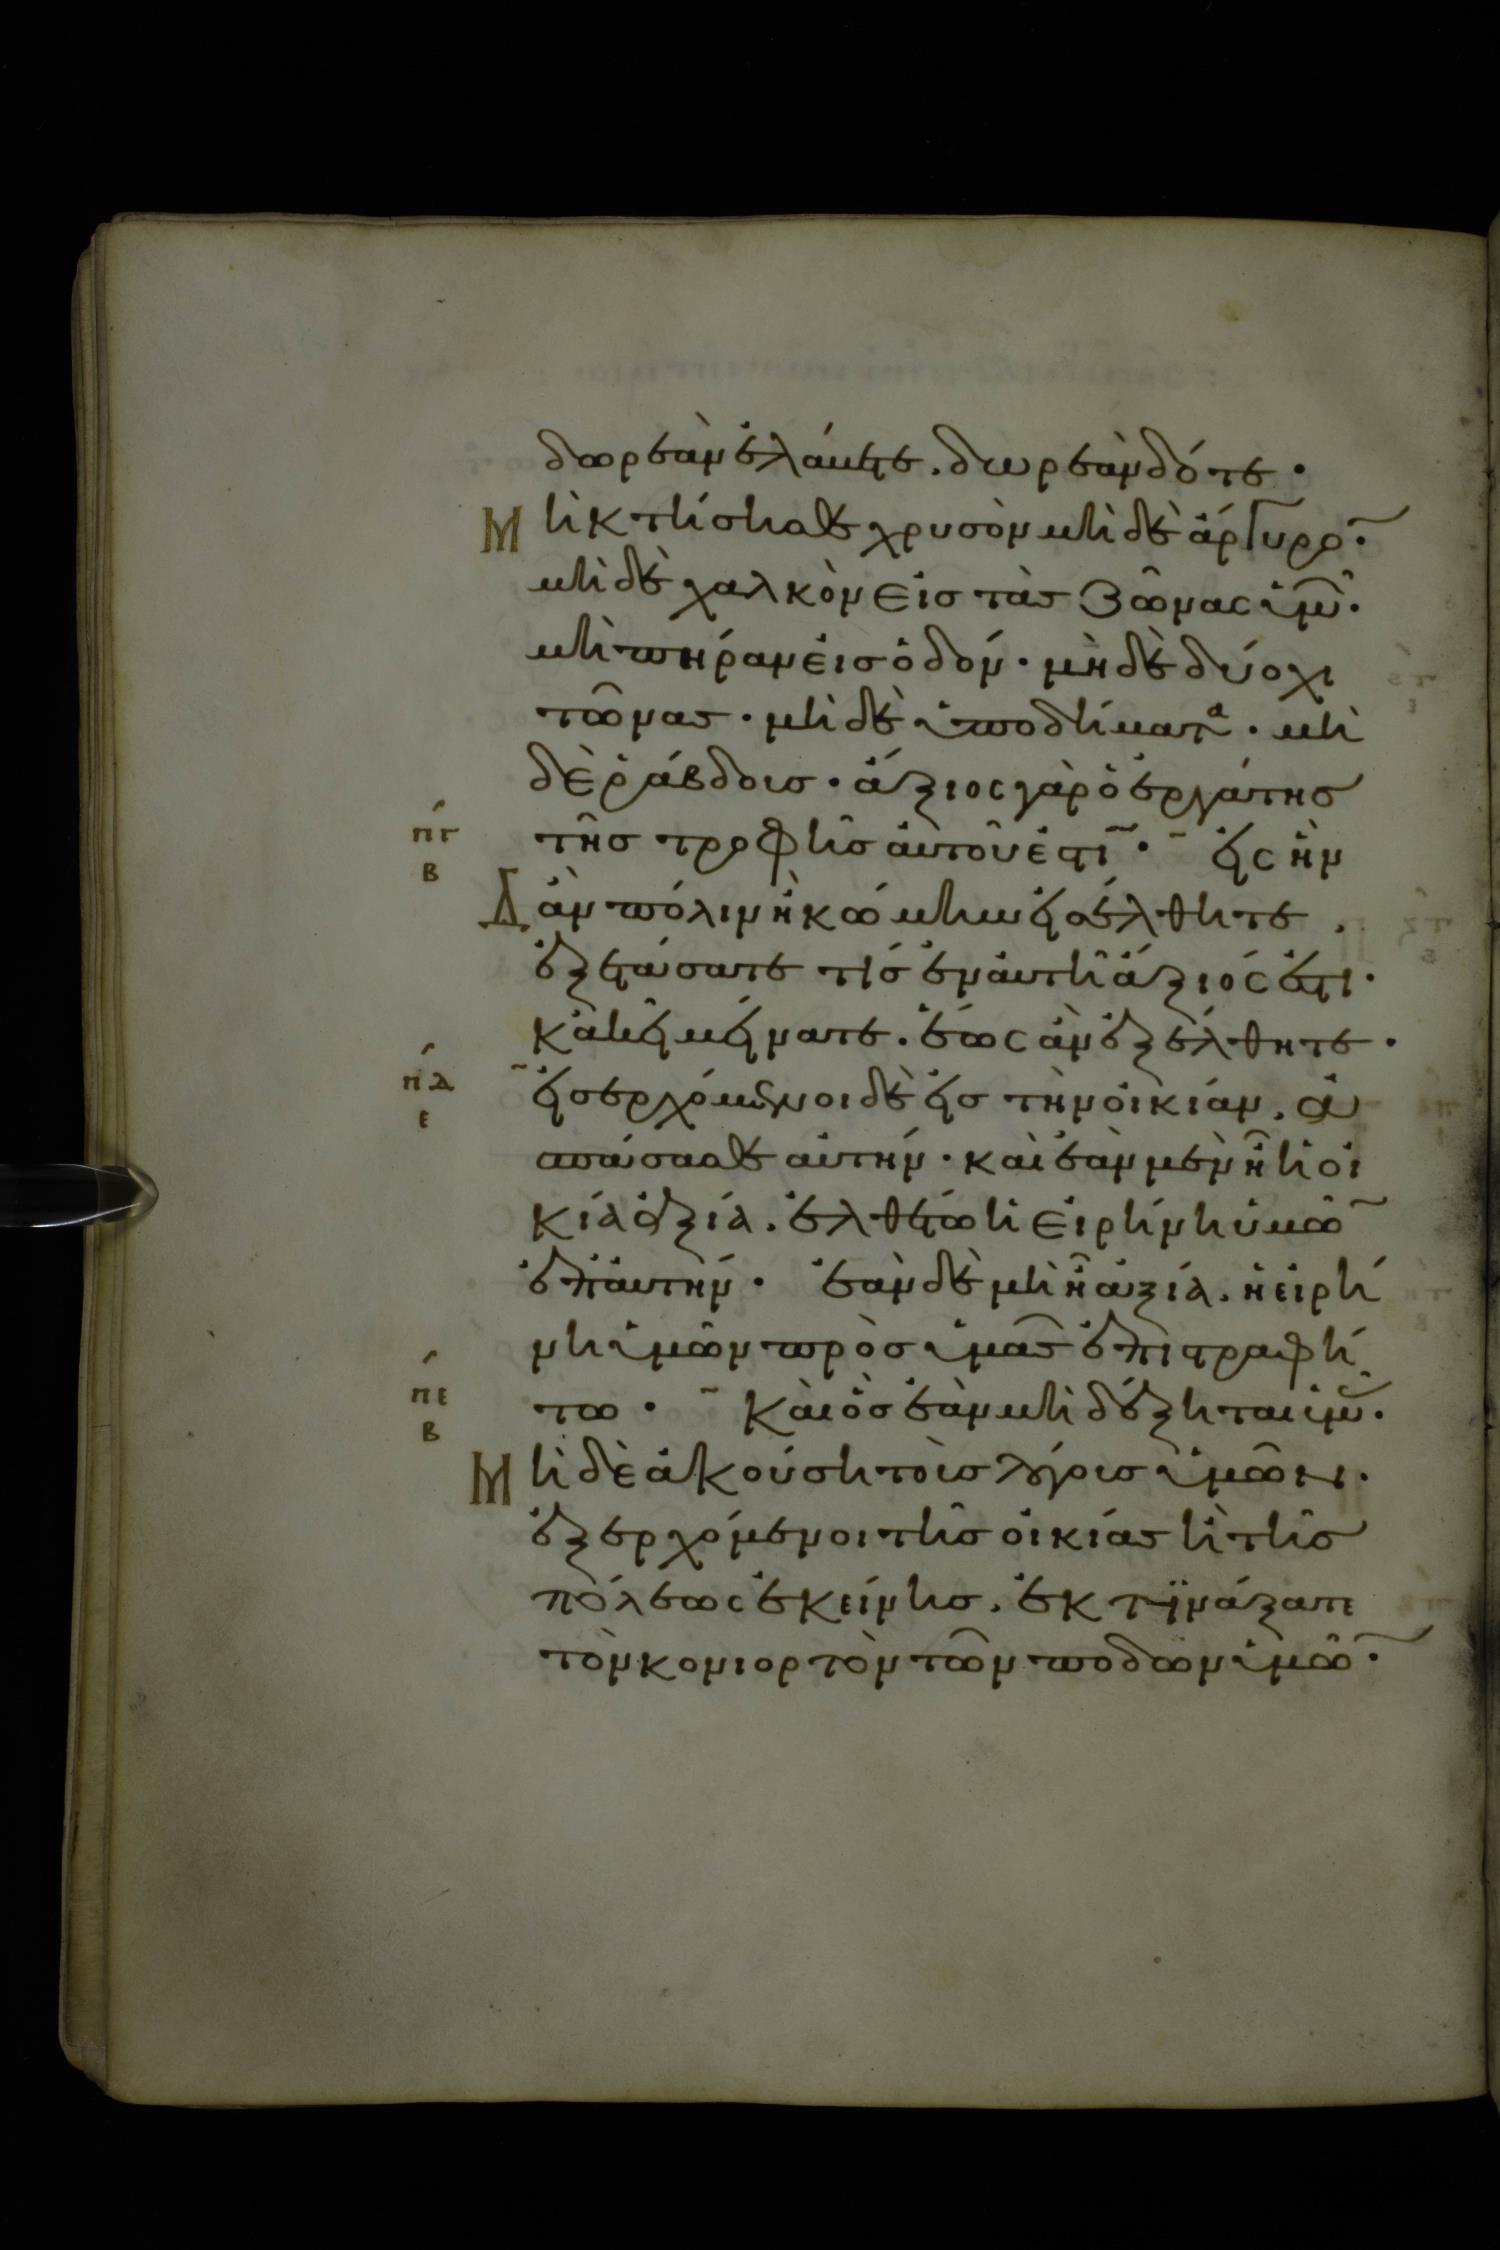 δωρεὰν ἐλάβετε. δωρεὰν δότε·
Μὴ κτήσησθε χρυσὸν μὴ δὲ ἄργυρο̅·
μὴ δὲ χαλκὸν εἰσ τὰσ ζῶνας ὑμῶ̅·
μὴ πήραν εἰσ ὁδόν· μὴ δὲ δύο χι
τῶνασ· μὴ δὲ ὑποδήματα· μὴ
δὲ ῥάβδουσ· ἄξιος γὰρ ὁ ἐργάτησ
πγ τῆσ τροφῆσ αὐτοῦ ἐστι̅· εἰς ἣν
β
Δ ἂν πόλιν ἢ κώμην εἰσέλθητε
ἐξετάσατε τίσ ἐν αὐτῆ ἄξιός ἐστι·
κἀκεῖ μείνατε. ἕως ἂν ἐξέλθητε·
πδ εἰσερχόμενοι δὲ εἰσ τὴν οἰκίαν. ἀ
ε
σπάσασθε αὐτήν· καὶ ἐὰν μὲν ῆ ἡ οἰ
κία ἀξία. ἐλθέτω ἡ εἰρήνη ὑμῶ̅
ἐπ αὐτήν· ἐὰν δὲ μὴ ῆ ἀξία. ἡ εἰρή
νη ὑμῶν πρὸσ ὑμᾶσ ἐπιστραφή
πε τω· Καὶ ὃσ ἐὰν μὴ δέξηται ὑμᾶσ·
β
Μὴ δὲ ἀκούση τοὺσ λόγουσ ὑμῶν·
ἐξερχόμενοι τῆσ οἰκίασ ἢ τῆσ
πόλεως ἐκείνησ. ἐκτινάξατε
τὸν κονιορτὸν τῶν ποδῶν ὑμῶ̅·